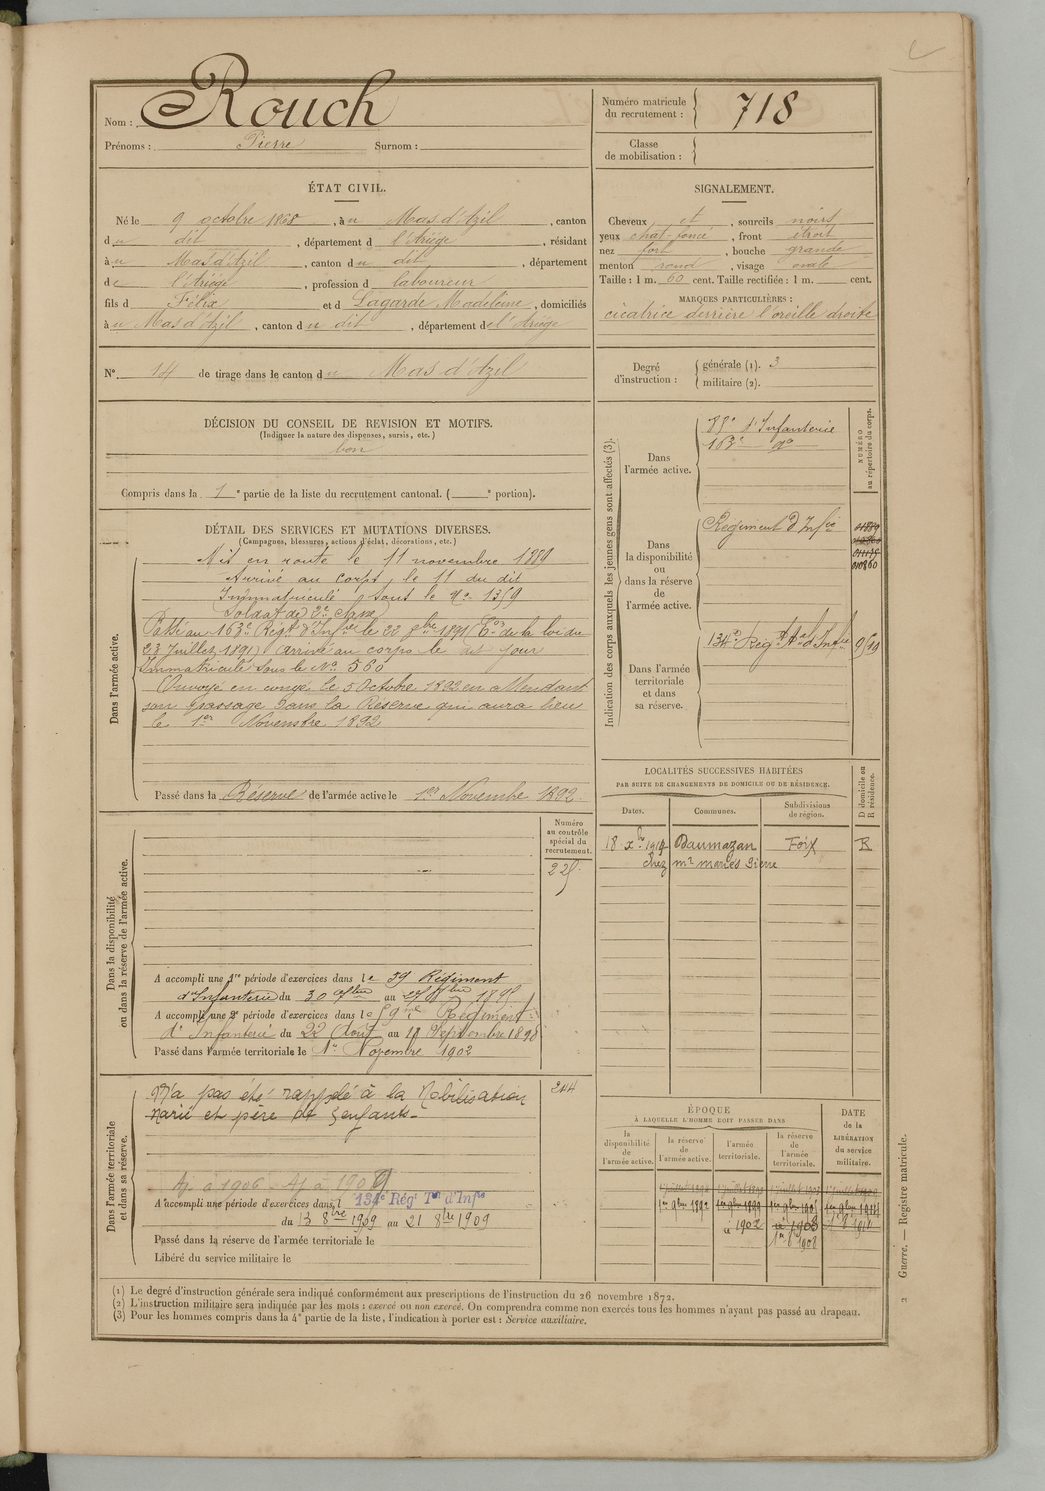 Nom : Rouch
Prénoms : Pierre Surnom :
Numéro matricule du recrutement : 718
Classe de mobilisation :
ÉTAT CIVIL.
Né le 9 octobre 1868, à u Mas d'Azil, canton
d u dit, département d l'Ariège, résidant
à u Mas d'Azil, canton d u dit, département
d e l'Ariège, profession d laboureur
fils d Félix et d Lagarde Madeleine, domiciliés
à u Mas d'Azil, canton d u dit, département de l'Ariège
N° 14 de tirage dans le canton d u Mas d'Azil
SIGNALEMENT.
Cheveux et, sourcils noirs
yeux chat. foncé, front étroit
nez fort, bouche grande
menton rond, visage ovale
Taille : 1 m. 60 cent. Taille rectifiée : 1 m. cent.
MARQUES PARTICULIÈRES :
cicatrice derrière l'oreille droite
Degré d'instruction : générale (1). 3
militaire (2).
DÉCISION DU CONSEIL DE REVISION ET MOTIFS.
(Indiquer la nature des dispenses, sursis, etc.)
bon
Compris dans la 1e partie de la liste du recrutement cantonal. ( e portion).
DÉTAIL DES SERVICES ET MUTATIONS DIVERSES.
(Campagnes, blessures, actions d'éclat, décorations, etc.)
Dans l'armée active.
Mis en route le 11 novembre 1889
Arrivé au corps le 11 du dit
Immatriculé sous le No. 1359
Soldat de 2e classe
Passé au 163e Régt d'Infrie le 22 9bre 1891 ( de la loi du
23 Juillet 1891) arrivé au corps le dit jour
Immatriculé sous le No 560
Envoyé en congé le 5 Octobre 1892 en attendant
son passage dans la Réserve qui aura lieu
le 1er Novembre 1892
Passé dans la Réserve de l'armée active le 1er Novembre 1892.
Indication des corps auxquels les jeunes gens sont affectés (3).
NUMÉRO au répertoire du corps.
Dans l'armée active.
d'Infanterie
163e do
Dans la disponibilité ou dans la réserve de l'armée active.
Régiment d'Infie
Dans l'armée territoriale et dans sa réserve.
134e Régt Tal d'Infie
LOCALITÉS SUCCESSIVES HABITÉES
PAR SUITE DE CHANGEMENTS DE DOMICILE OU DE RÉSIDENCE.
Dates. Communes. Subdivisions de région. D domicile ou R résidence.
Daumazan Foix R
chez Mr Pierre
Dans la disponibilité ou dans la réserve de l'armée active.
Numéro au contrôle spécial du recrutement.
A accompli une 1re période d'exercices dans le 59 Régiment
d'Infanterie du 30 au
A accompli une 2e période d'exercices dans le 59e Régiment
d'Infanterie du 22 Août au Septembre 1898
Passé dans l'armée territoriale le 1er Novembre 1902
Dans l'armée territoriale et dans sa réserve.
244
N'a pas été rappelé à la Mobilisation
Marié et père de enfants.
Aj. à 1906 - Aj à 1909
A accompli une période d'exercices dans l 134e Régt Tal d'Infie
du 13 8bre 1909 au 21 8bre 1909
Passé dans la réserve de l'armée territoriale le
Libéré du service militaire le
ÉPOQUE
À LAQUELLE L'HOMME DOIT PASSER DANS
la disponibilité de l'armée active. la réserve de l'armée active. l'armée territoriale. la réserve de l'armée territoriale.
DATE de la LIBÉRATION du service militaire.
(1) Le degré d'instruction générale sera indiqué conformément aux prescriptions de l'instruction du 26 novembre 1872.
(2) L'instruction militaire sera indiquée par les mots : exercé ou non exercé. On comprendra comme non exercés tous les hommes n'ayant pas passé au drapeau.
(3) Pour les hommes compris dans la 4e partie de la liste, l'indication à porter est : Service auxiliaire.
Guerre. — Registre matricule. 2